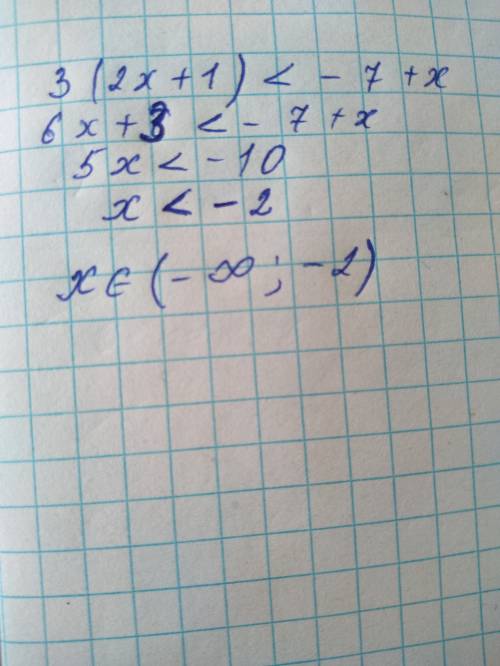 3 (2x + 1) < - 7 + x
6x + 3 < - 7 + x
5x < -10
x < -2
x ∈ (-∞; -2)